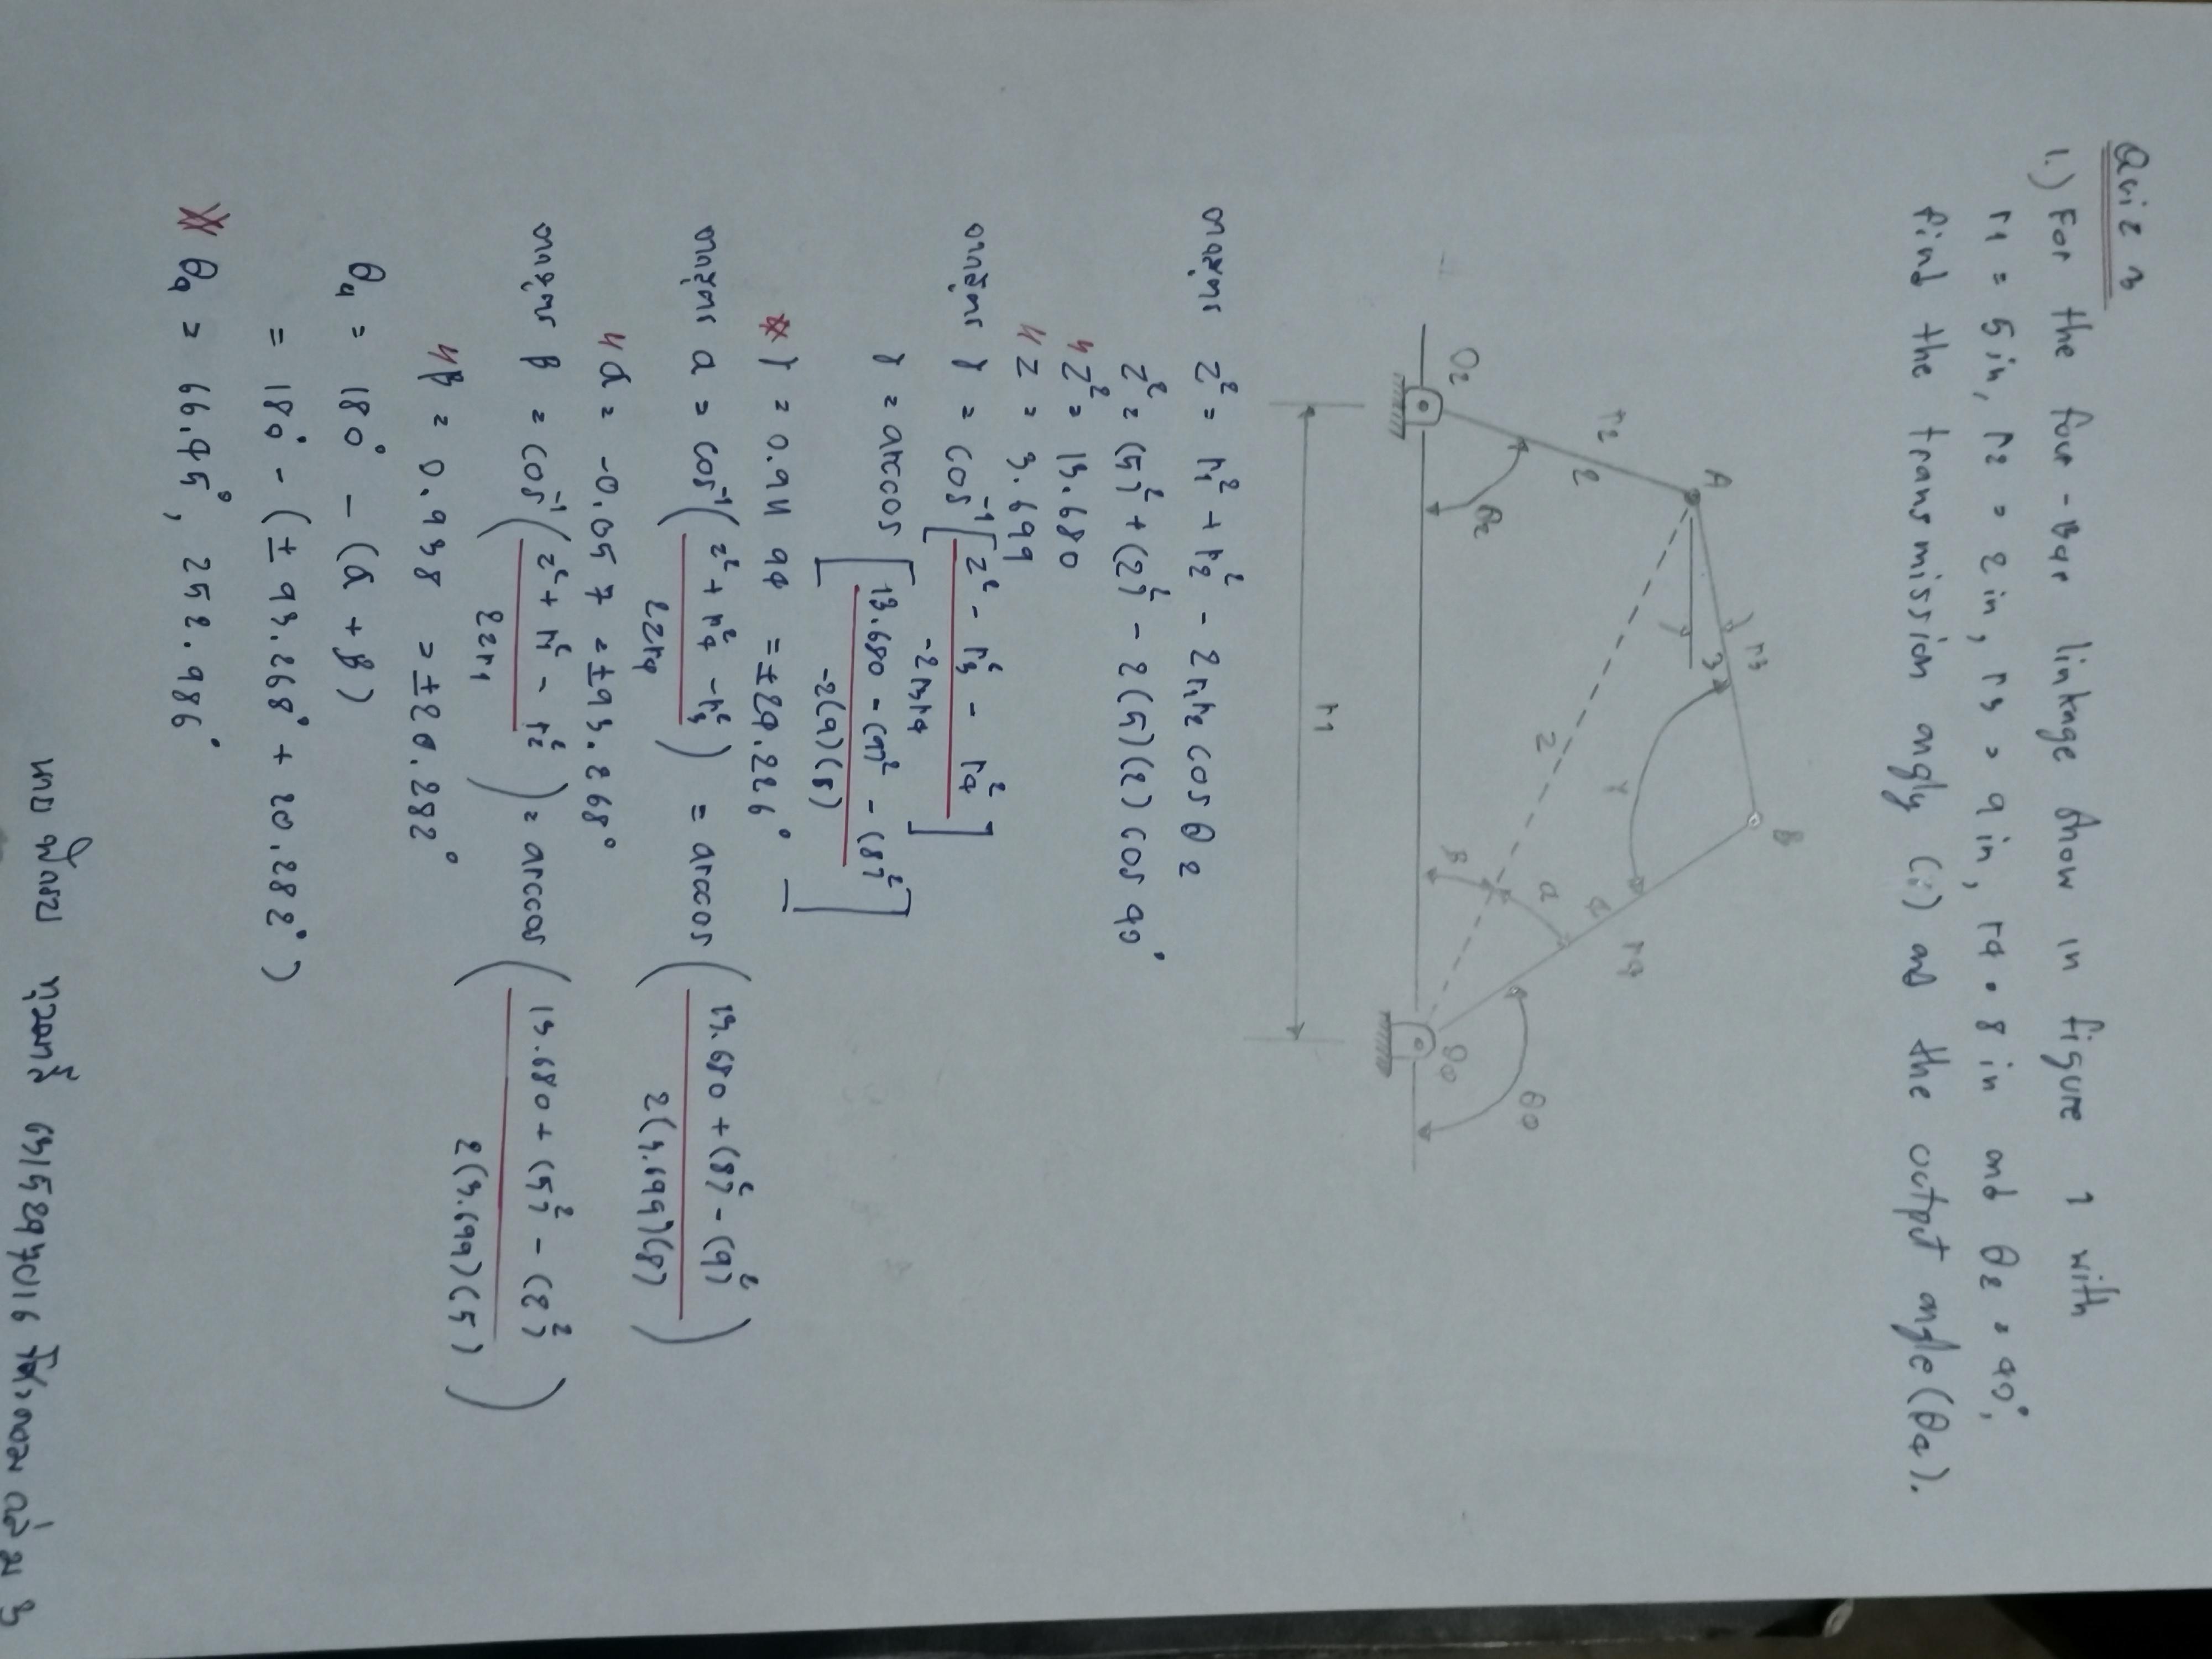 Quiz 3
1.) For the four-Bar linkage show in figure 1 with
r1 = 5 in, r2 = 2 in, r3 = 9 in, r4 = 8 in and θ2 = 40°,
find the transmission angly (γ) and the output angle (θ4).
A
B
r2
2
θ2
O2
r3
3
r4
4
Z
γ
α
β
r1
จากสูตร Z² = r1² + r2² - 2r1r2 cos θ2
Z² = (5)² + (2)² - 2(5)(2) cos 40°
Z² = 13.680
Z = 3.699
จากสูตร γ = cos⁻¹[Z² - r3² - r4² / -2r3r4]
γ = arccos [13.680 - (9)² - (8)² / -2(9)(8)]
γ = 0.911 94 = ±24.226°
จากสูตร α = cos⁻¹(Z² + r4² - r3² / 2Zr4) = arccos (13.680 + (8)² - (9)² / 2(3.699)(8))
α = -0.057 = ±93.268°
จากสูตร β = cos⁻¹(Z² + r1² - r2² / 2Zr1) = arccos (13.680 + (5)² - (2)² / 2(3.699)(5))
β = 0.938 = ±20.282°
θ4 = 180° - (α + β)
= 180° - (±93.268° + 20.282°)
θ4 = 66.45°, 252.986°
นาย